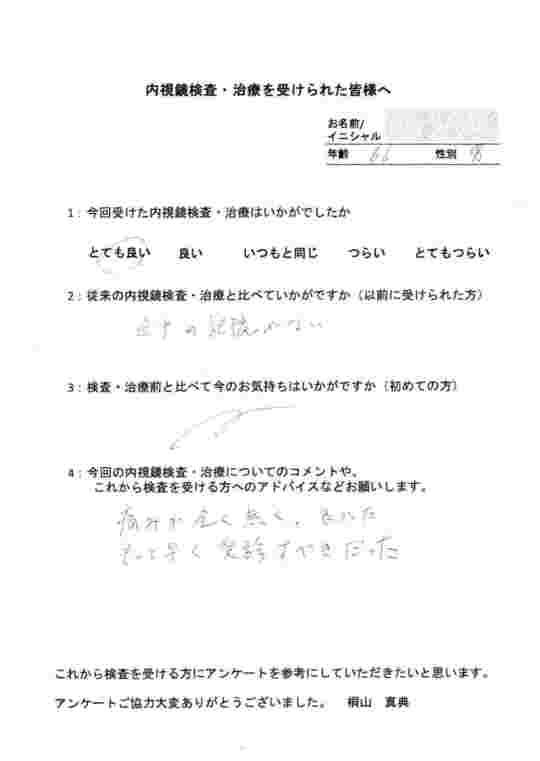 内視鏡検査・治療を受けられた皆様へ
お名前/
イニシャル
年齢 66 性別 男
1：今回受けた内視鏡検査・治療はいかがでしたか
とても良い 良い いつもと同じ つらい とてもつらい
2：従来の内視鏡検査・治療と比べていかがですか（以前に受けられた方）
途中の記憶がない
3：検査・治療前と比べて今のお気持ちはいかがですか（初めての方）
4：今回の内視鏡検査・治療についてのコメントや、
これから検査を受ける方へのアドバイスなどお願いします。
痛みが全く無く、良かった
もっと早く受診すべきだった
これから検査を受ける方にアンケートを参考にしていただきたいと思います。
アンケートご協力大変ありがとうございました。 桐山 真典